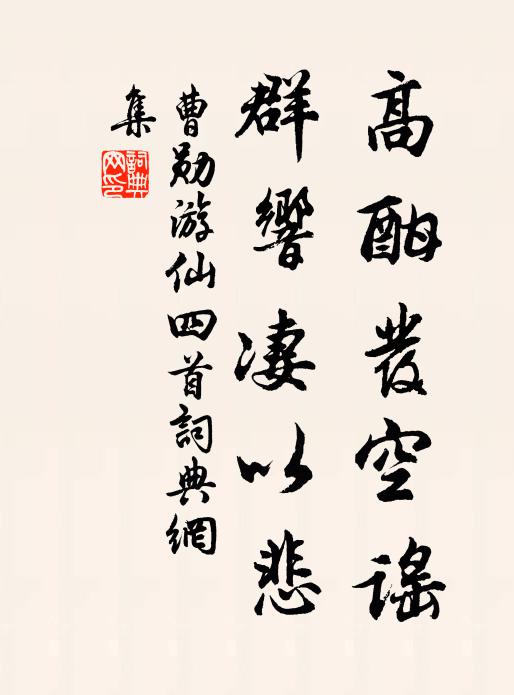 高酣發空謠
群響凄以悲
曹勛游仙四首詞典網
集
詞典
网印